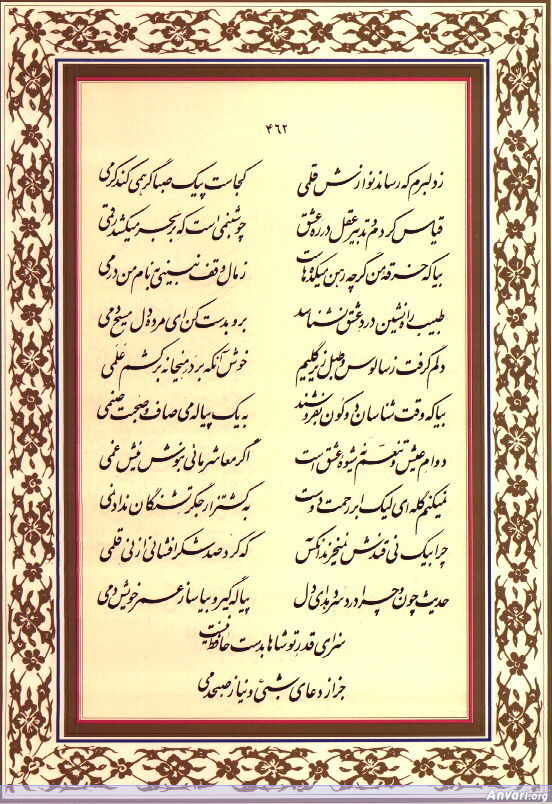 ۴۶۲
ز دلبرم که رساند نوازش قلمی کجاست پیک صبا گر همی کند کرمی
قیاس کردم و تدبیر عقل در ره عشق چو شبنمی است که بر بحر میکشد رقمی
بیا که خرقه من گرچه رهن میکده‌هاست ز مال وقف نبینی بنام من درمی
طبیب راه نشین درد عشق نشناسد برو بدست کن ای مرده دل مسیح دمی
دلم گرفت ز سالوس و طبل زیر گلیم خوش آنکه بر در میخانه برکشم عَلَمی
بیا که وقت شناسان دو کون بفروشند به یک پیاله می صاف و صحبت صنمی
دوام عیش و تنعم نه شیوه عشق است اگر معاشر مائی بنوش نیش غمی
نمیکنم گله‌ای لیک ابر رحمت دوست به کشتزار جگر تشنگان نداد نمی
چرا بیک نی قندش نمیخرند آنکس که کرد صد شکر افشانی از نی قلمی
حدیث چون و چرا درد سر دهد ای دل پیاله گیر و بیاساز عمر خویش دمی
سزای قدر تو شاها بدست حافظ نیست
جز از دعای شبی و نیاز صبحدمی
AnVari.org